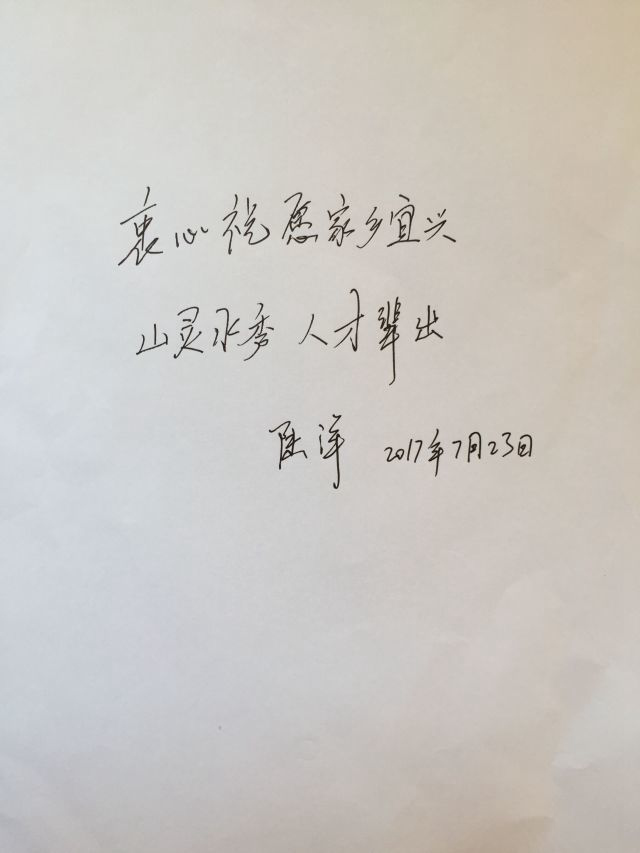 衷心祝愿家乡宜兴
山灵水秀 人才辈出
陆洋 2017年7月23日